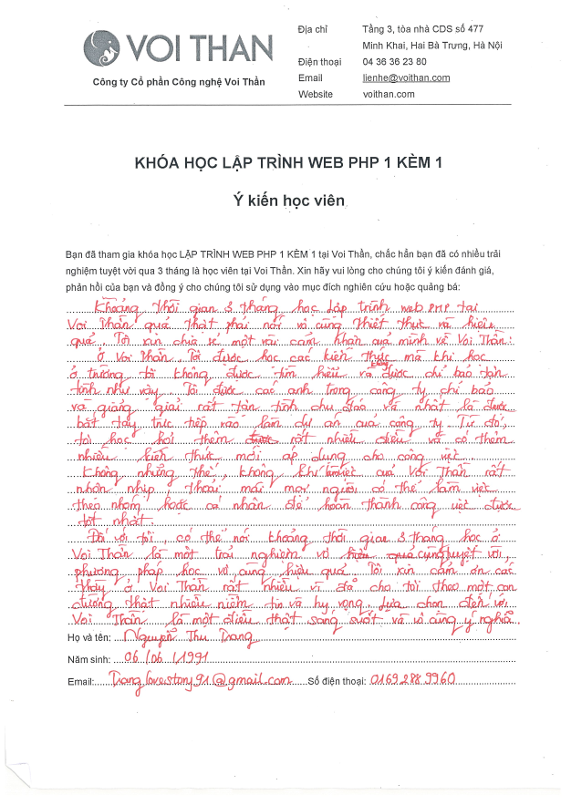 VOI THAN
Công ty Cổ phần Công nghệ Voi Thần
Địa chỉ Tầng 3, tòa nhà CDS số 477
Minh Khai, Hai Bà Trưng, Hà Nội
Điện thoại 04 36 36 23 80
Email lienhe@voithan.com
Website voithan.com
KHÓA HỌC LẬP TRÌNH WEB PHP 1 KÈM 1
Ý kiến học viên
Bạn đã tham gia khóa học LẬP TRÌNH WEB PHP 1 KÈM 1 tại Voi Thần, chắc hẳn bạn đã có nhiều trải
nghiệm tuyệt vời qua 3 tháng là học viên tại Voi Thần. Xin hãy vui lòng cho chúng tôi ý kiến đánh giá,
phản hồi của bạn và đồng ý cho chúng tôi sử dụng vào mục đích nghiên cứu hoặc quảng bá:
Khoảng thời gian 3 tháng học lập trình web PHP tại
Voi Thần quả thật phải nói vô cùng thiết thực và hiệu
quả. Tôi xin chia sẻ một vài cảm nhận của mình về Voi Thần:
Ở Voi Thần, Tôi được học các kiến thức mà khi học
ở trường tôi không được tìm hiểu và được chỉ bảo tận
tình như vậy. Tôi được các anh trong công ty chỉ bảo
và giảng giải rất tận tình chu đáo và nhất là được
bắt tay trực tiếp vào làm dự án của công ty. Từ đó,
tôi học hỏi thêm được rất nhiều điều và có thêm
nhiều kiến thức mới áp dụng cho công việc.
Không những thế, không khí làm việc của Voi Thần rất
nhộn nhịp thoải mái mọi người có thể làm việc
theo nhóm hoặc cá nhân để hoàn thành công việc được
tốt nhất.
Đối với tôi, có thể nói khoảng thời gian 3 tháng học ở
Voi Thần là một trải nghiệm vô cùng tuyệt vời,
phương pháp học vô cùng hiệu quả. Tôi xin cảm ơn các
thầy ở Voi Thần rất nhiều vì đã cho tôi theo một con
đường thật nhiều niềm tin và hy vọng. Lựa chọn đến với
Voi Thần là một điều thật sáng suốt và vô cùng ý nghĩa.
Họ và tên: Nguyễn Thu Trang
Năm sinh: 06/06/1991
Email: Tranglovestory91@gmail.com Số điện thoại: 01692889960